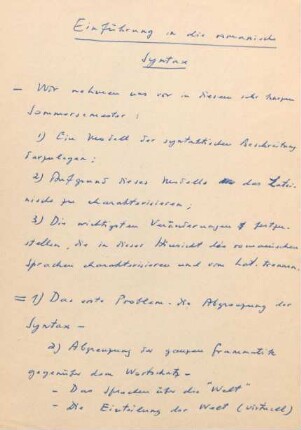 Einführung in die romanische
Syntax
- Wir nehmen uns vor in diesem sehr kurzen
Sommersemester:
1) Ein Modell der syntaktischen Beschreibung
darzulegen;
2) Aufgrund dieses Modells das Latei-
nische zu charakterisieren;
3) Die wichtigsten Veränderungen festzu-
stellen, die in dieser Hinsicht die romanischen
Sprachen charakterisieren und vom Lat. trennen.
= 1) Das erste Problem: die Abgrenzung der
Syntax -
2) Abgrenzung der ganzen Grammatik
gegenüber dem Wortschatz -
- Das Sprechen über die "Welt"
- Die Einteilung der Welt (virtuell)